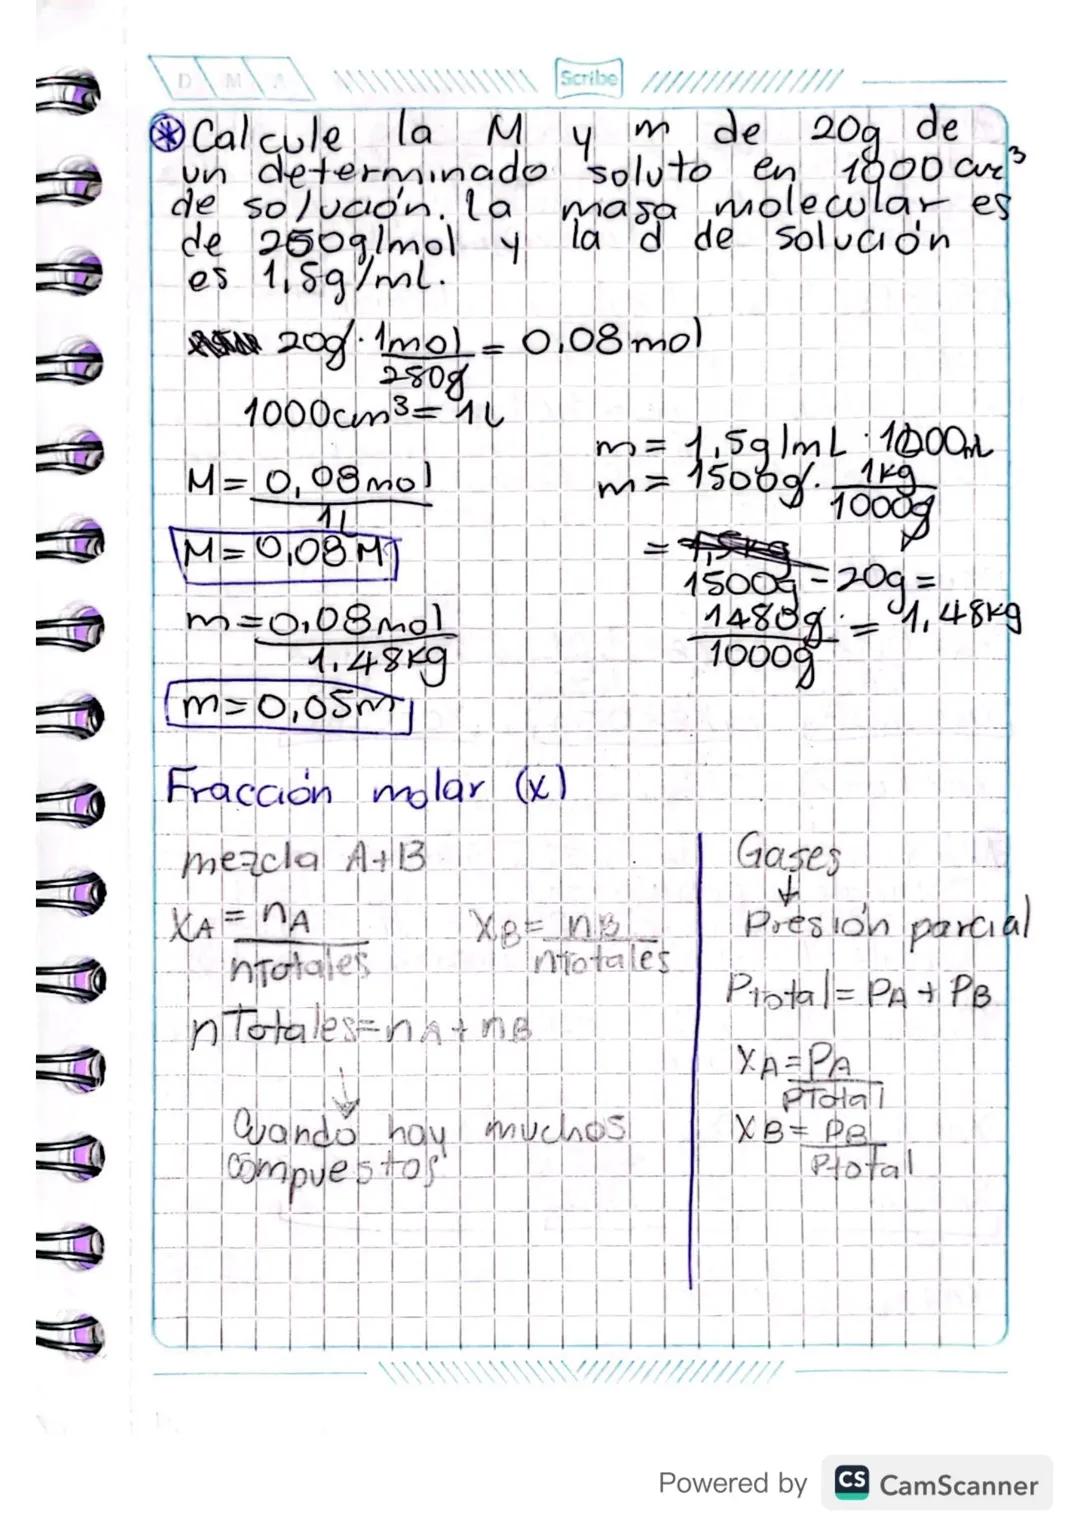 D M A Scribe
Calcule la M y m de 20g de
un determinado soluto en 1000 cm³
de solución. la masa molecular es
de 250g/mol y la d de solución
es 1,5g/ml.
20g · 1mol = 0.08mol
250g
1000cm³ = 1L
m = 1,5g/mL · 1000mL
M = 0,08mol
1L
m = 1500g · 1kg
1000g
M = 0,08 M
= 1,5kg
1500g - 20g =
m = 0,08mol
1.48kg
1480g = 1,48kg
1000g
m = 0,05m
Fracción molar (x)
mezcla A+B
XA = nA
nTotales
XB = nB
nTotales
nTotales = nA + nB
↓
Cuando hay muchos
compuestos
Gases
↓
Presión parcial
Ptotal = PA + PB
XA = PA
PTotal
XB = PB
Ptotal
Powered by CS CamScanner